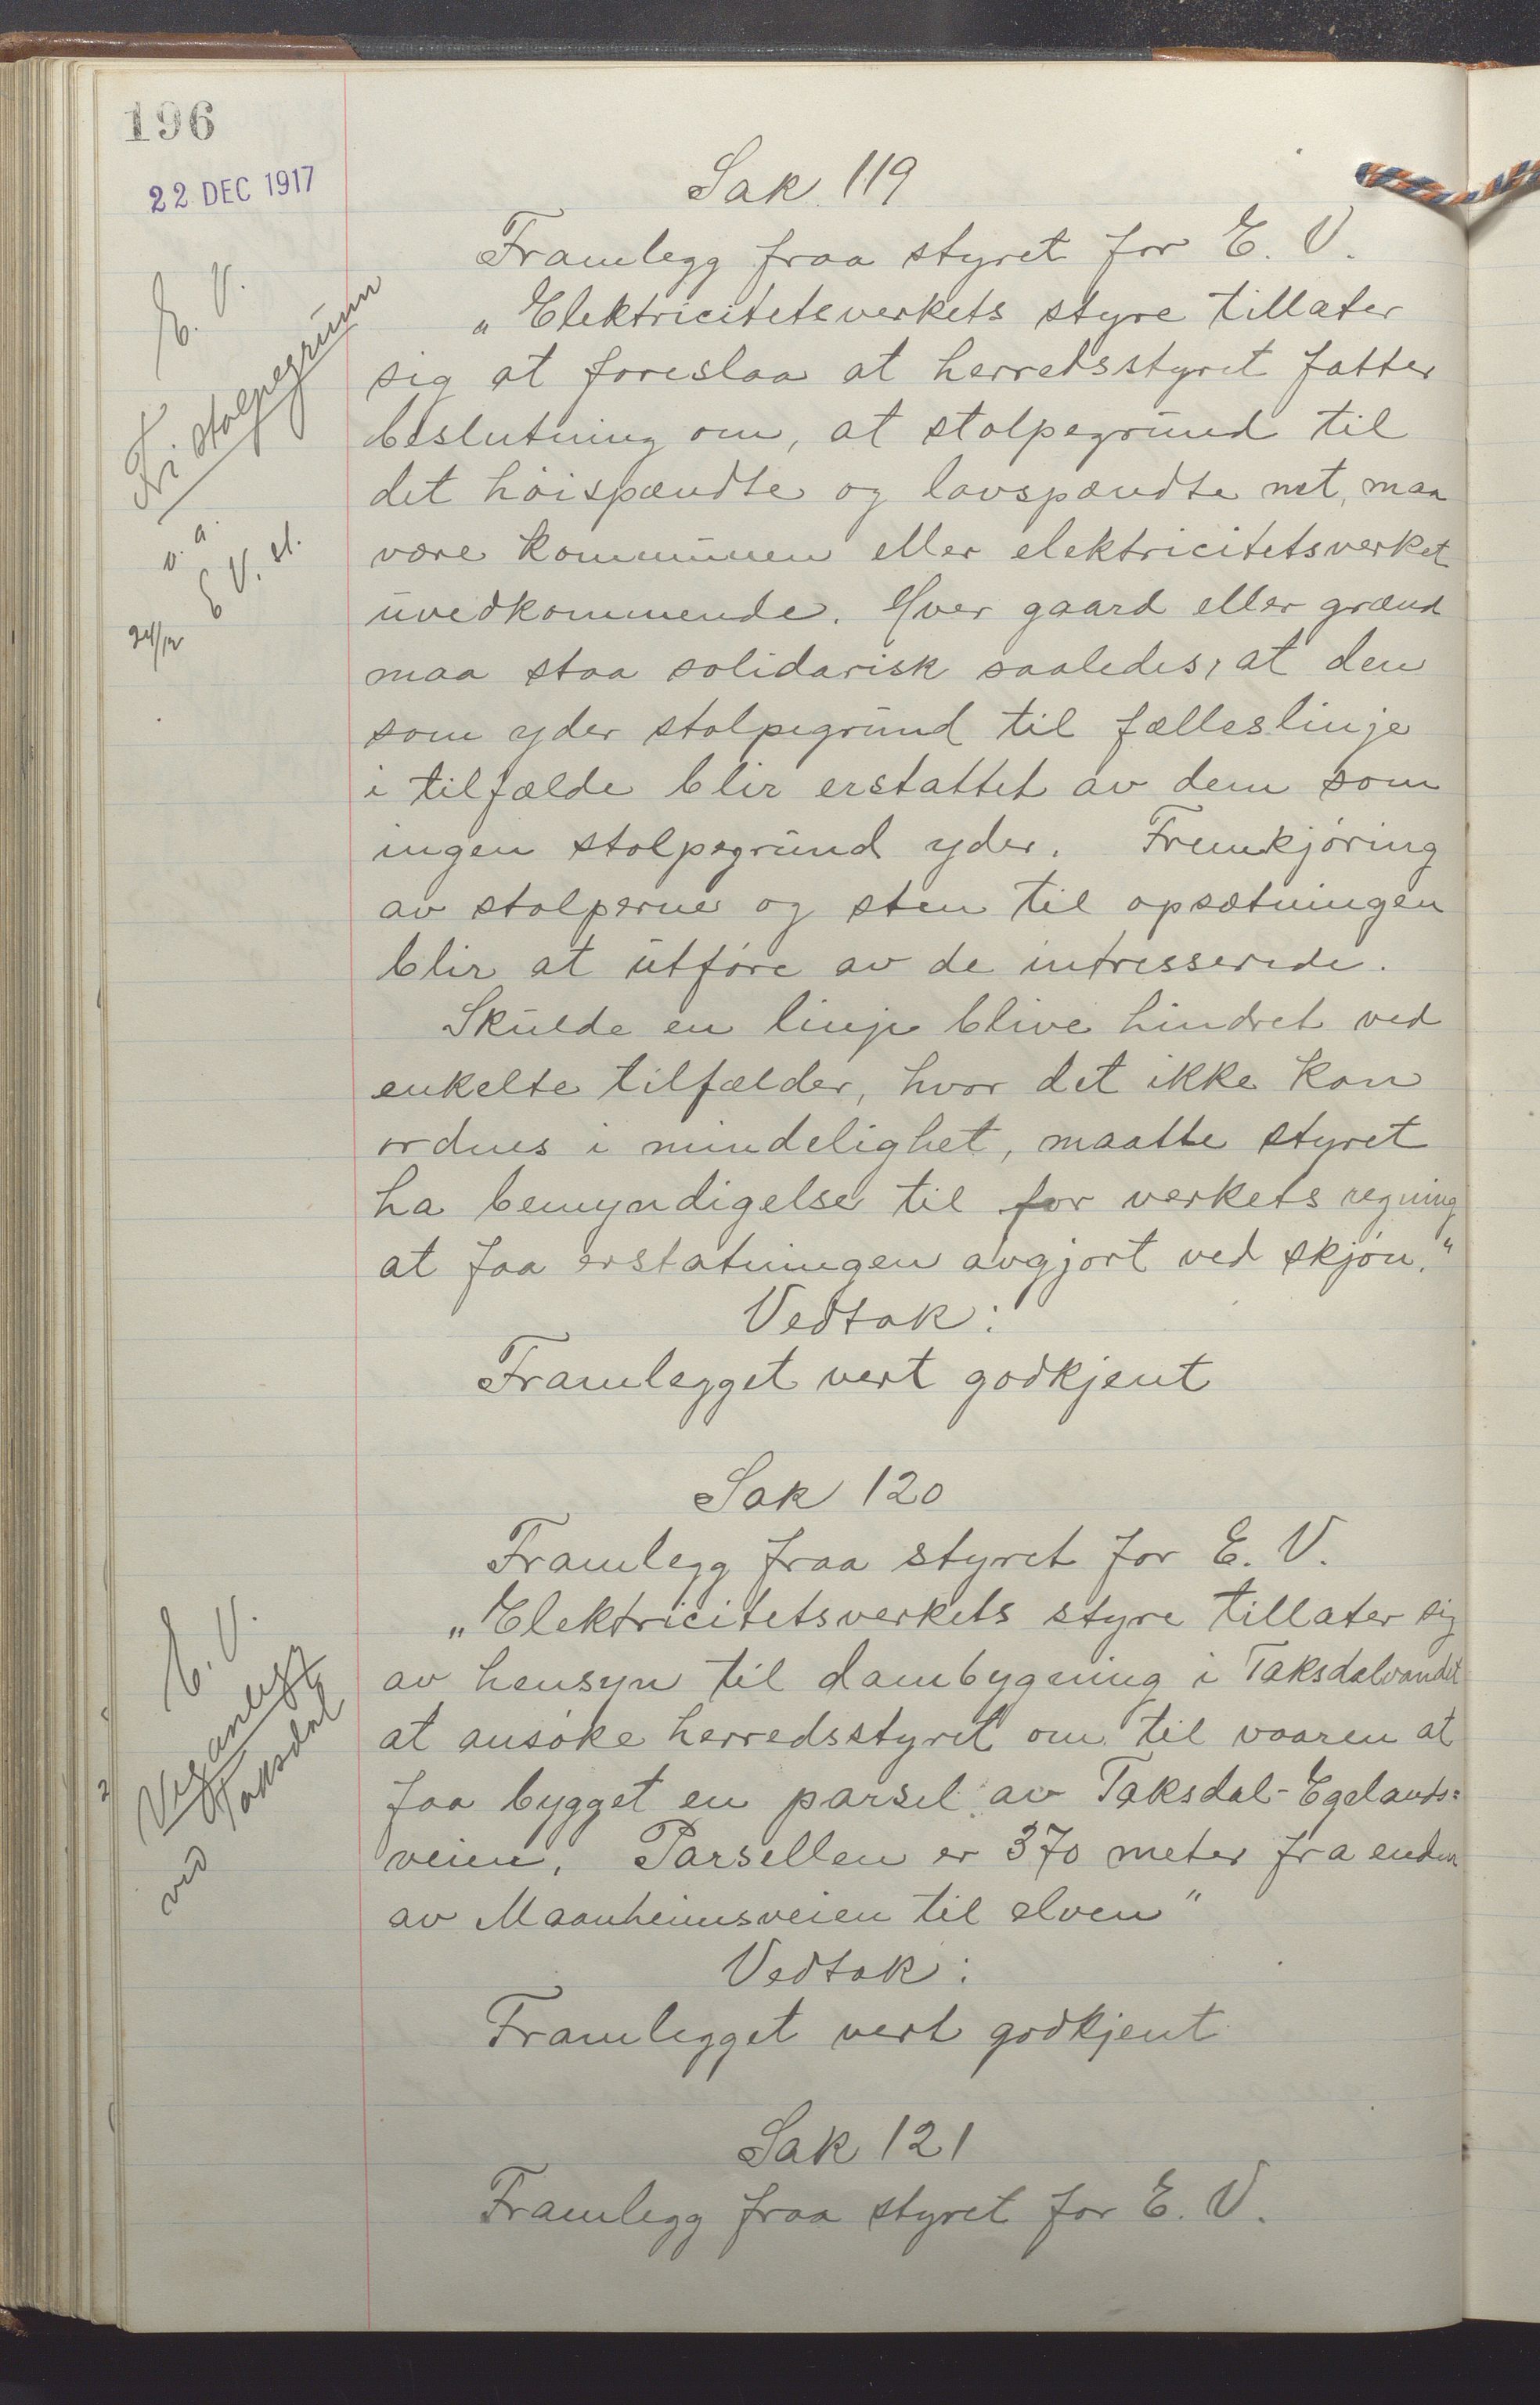 196
22 DEC 1917
Sak 119
Framlegg fraa styret for E. V.
„Elektricitetsverkets styre tillater
sig at foreslaa at herredsstyret fatter
beslutning om, at stolpegrund til
det höispændte og lavspændte net, maa
være kommunen eller elektricitetsverket
uvedkommende. Hver gaard eller grænd
maa staa solidarisk saaledes, at den
som yder stolpegrund til fælleslinje
i tilfælde blir erstattet av dem som
ingen stolpegrund yder. Fremkjöring
av stolperne og sten til opsætningen
blir at utföre av de intresserede.
Skulde en linje blive hindret ved
enkelte tilfælder, hvor det ikke kan
ordnes i mindelighet, maatte styret
ha bemyndigelse til for verkets regning
at faa erstatningen avgjort ved skjön."
Vedtak:
Framlegget vert godkjent
E. V.
Fri stolpegrunn
u. a.
E V. st.
24/12
Sak 120
Framlegg fraa styret for E. V.
„Elektricitetsverkets styre tillater sig
av hensyn til dambygning i Taksdalvandet
at ansöke herredsstyret om til vaaren at
faa bygget en parsel av Taksdal-Egelands=
veien, Parsellen er 370 meter fra enden
av Maanheimsveien til elven"
Vedtak:
Framlegget vert godkjent
E. V.
Veganlegg
ved Taksdal
Sak 121
Framlegg fraa styret for E. V.